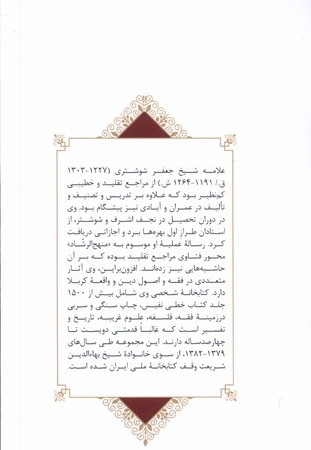 علامه شیخ جعفر شوشتری (۱۲۲۷-۱۳۰۳
ق./ ۱۱۹۱-۱۲۶۴ ش.) از مراجع تقلید و خطیبی
کم‌نظیر بود که علاوه بر تدریس و تصنیف و
تألیف در عمران و آبادی نیز پیشگام بود. وی
در دوران تحصیل در نجف اشرف و شوشتر، از
استادان طراز اول بهره‌ها برد و اجازاتی دریافت
کرد. رسالهٔ عملیهٔ او موسوم به «منهج‌الرشاد»
محور فتاوی مراجع تقلید بوده که بر آن
حاشیه‌هایی نیز زده‌اند. افزون‌براین، وی آثار
متعددی در فقه و اصول دین و واقعهٔ کربلا
دارد. کتابخانهٔ شخصی وی شامل بیش از ۱۵۰۰
جلد کتاب خطی نفیس، چاپ سنگی و سربی
درزمینهٔ فقه، فلسفه، علوم غریبه، تاریخ و
تفسیر است که غالباً قدمتی دویست تا
چهارصدساله دارند. این مجموعه طی سال‌های
۱۳۷۹-۱۳۸۲، از سوی خانوادهٔ شیخ بهاءالدین
شریعت وقف کتابخانهٔ ملی ایران شده است.